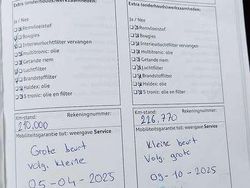 Extra (onderhouds)werkzaamheden:
Ja / Nee
Remvloeistof
Bougies
Interieurluchtfilter vervangen
Multitronic: olie
Getande riem
Luchtfilter
Brandstoffilter
Haldex: olie
S tronic: olie en filter
Km-stand:
Rekeningnummer:
210.000
Mobiliteitsgarantie tot: weergave Service
Grote beurt
Volg. kleine
05-04-2025
Extra (onderhouds)werkzaamheden:
Ja / Nee
Remvloeistof
Bougies
Interieurluchtfilter vervangen
Multitronic: olie
Getande riem
Luchtfilter
Brandstoffilter
Haldex: olie
S tronic: olie en filter
Km-stand:
Rekeningnummer:
226.770
Mobiliteitsgarantie tot: weergave Service
Kleine beurt
Volg. grote
09-10-2025